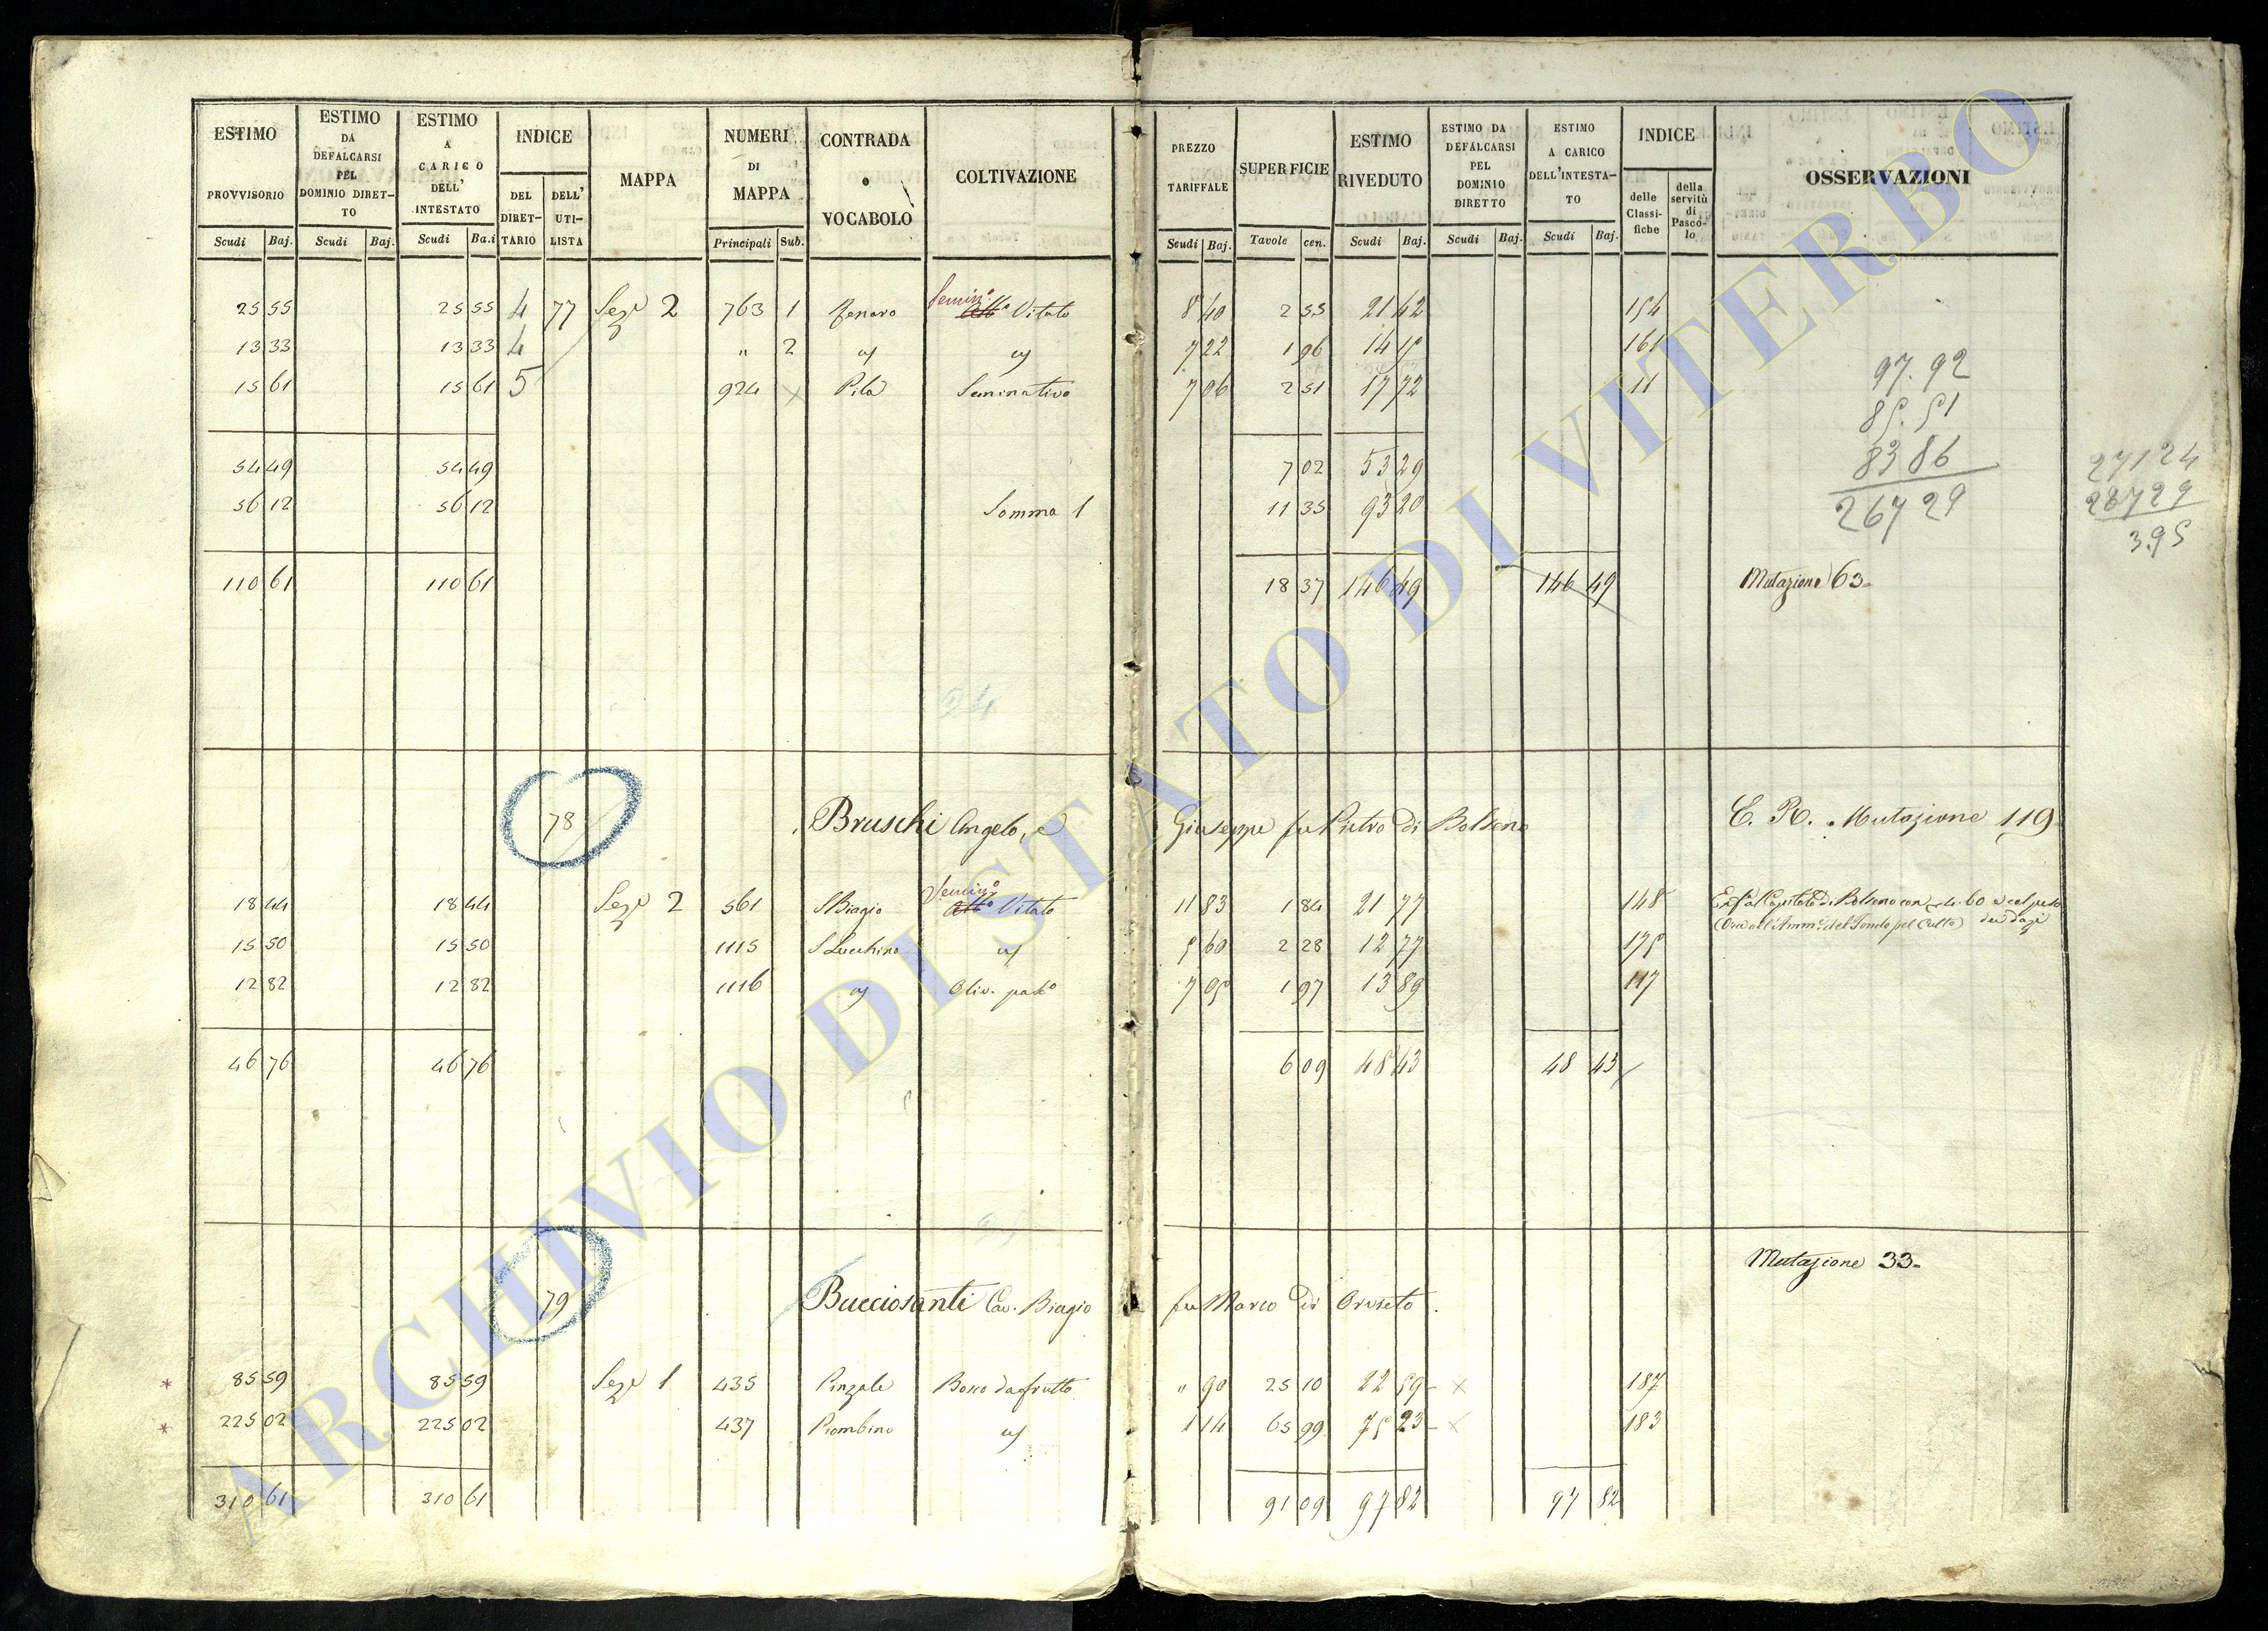 ESTIMO PROVVISORIO Scudi Baj.
ESTIMO DA DEFALCARSI PEL DOMINIO DIRETTO Scudi Baj.
ESTIMO A CARICO DELL' INTESTATO Scudi Ba.i
INDICE DEL DIRETTARIO DELL' UTILISTA
MAPPA
NUMERI DI MAPPA Principali Sub.
CONTRADA o VOCABOLO
COLTIVAZIONE
PREZZO TARIFFALE Scudi Baj.
SUPERFICIE Tavole cen.
ESTIMO RIVEDUTO Scudi Baj.
ESTIMO DA DEFALCARSI PEL DOMINIO DIRETTO Scudi Baj.
ESTIMO A CARICO DELL'INTESTATO Scudi Baj.
INDICE delle Classifiche della servitù di Pascolo
OSSERVAZIONI
25 55 25 55 4 77 Sez.e 2 763 1 Semin.o Vitato 8 40 2 55 21 42 154
13 33 13 33 4 " 2 7 22 1 96 14 15 161
15 61 15 61 5 924 Pila Seminativo 7 06 2 51 17 72 11
97.92
85.51
83 86
267 29
271 24
287 29
3.95
54 49 54 49 7 02 53 29
56 12 56 12 Somma 1 11 35 93 20
110 61 110 61 18 37 146 49 146 49 Mutazione 63
24
78 Bruschi Angelo, e Giuseppe fu Pietro di Bolseno C. R. Mutazione 119
18 44 18 44 Sez.e 2 561 S Biagio Semin.o Vitato 11 83 1 84 21 77 148
(Ora all'Amm.e del Fondo pel Culto)
15 50 15 50 1115 S Lucchino 5 60 2 28 12 77 175
12 82 12 82 1116 Oliv. past.o 7 05 1 97 13 89 117
46 76 46 76 6 09 48 43 48 43
Mutazione 33
79 Bucciosanti Cav. Biagio fu Marco di Orvieto
85 59 85 59 Sez.e 1 435 Pinzale Bosco da frutto " 90 25 10 22 59 187
225 02 225 02 437 Piombino 1 14 65 99 75 23 183
310 61 310 61 91 09 97 82 97 82
ARCHIVIO DI STATO DI VITERBO